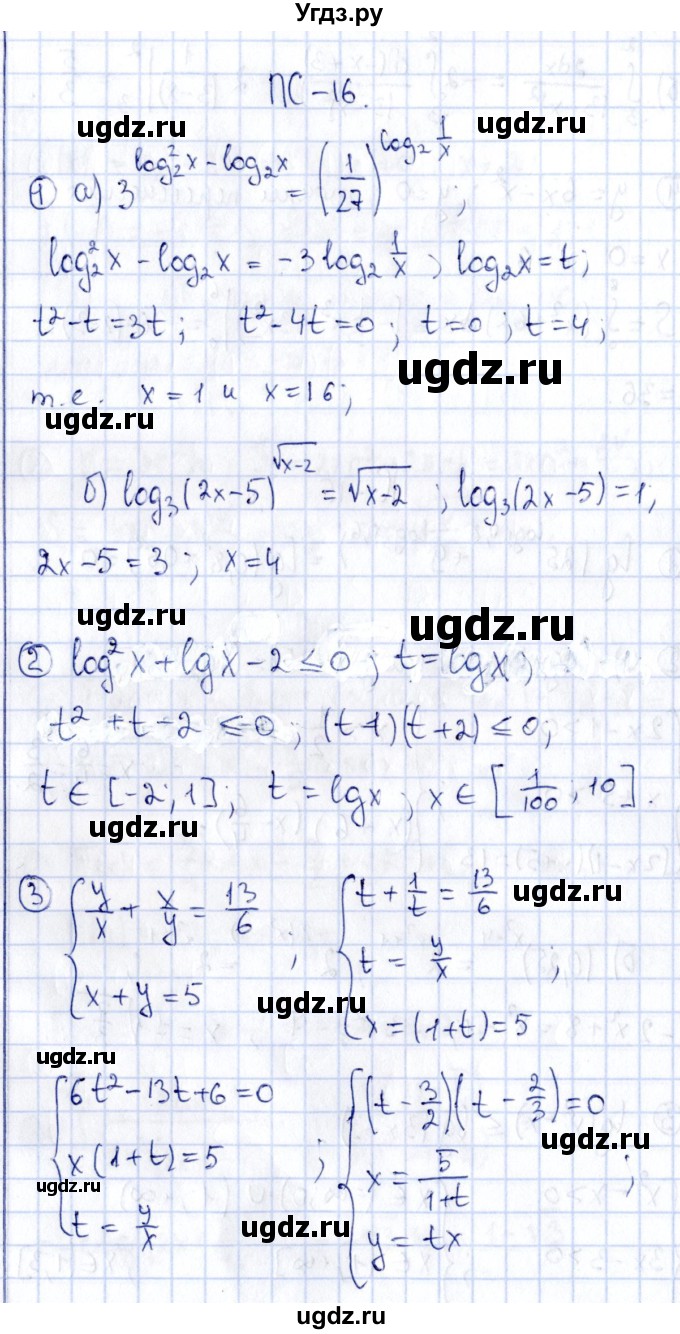 Угдз.ру
ПС-16.
ugdz.ru ugdz.ru
① а) 3^(log₂²x - log₂x) = (1/27)^(log₂ 1/x) ;
log₂²x - log₂x = -3log₂ 1/x ; log₂x = t;
t² - t = 3t ; t² - 4t = 0 ; t = 0 ; t = 4 ;
ugdz.ru
т.е. x = 1 и x = 16 ;
ugdz.ru
б) log₃(2x-5)^√(x-2) = √(x-2) ; log₃(2x-5) = 1 ;
2x - 5 = 3 ; x = 4
ugdz.ru ugdz.ru
② log²x + lgx - 2 ≤ 0 ; t = lgx ;
t² + t - 2 ≤ 0 ; (t-1)(t+2) ≤ 0 ;
t ∈ [-2; 1] ; t = lgx ; x ∈ [1/100 ; 10].
ugdz.ru
③ { y/x + x/y = 13/6 ; { t + 1/t = 13/6 ;
ugdz.ru
x + y = 5 t = y/x
ugdz.ru
x = (1+t) = 5
ugdz.ru
{ 6t² - 13t + 6 = 0 ; { (t - 3/2)(t - 2/3) = 0 ;
ugdz.ru
x(1+t) = 5 x = 5/(1+t)
ugdz.ru
t = y/x y = tx
ugdz.ru
ugdz.ru